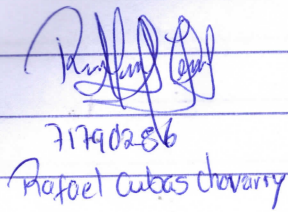 71790286
Rafael Cubas Chavarry